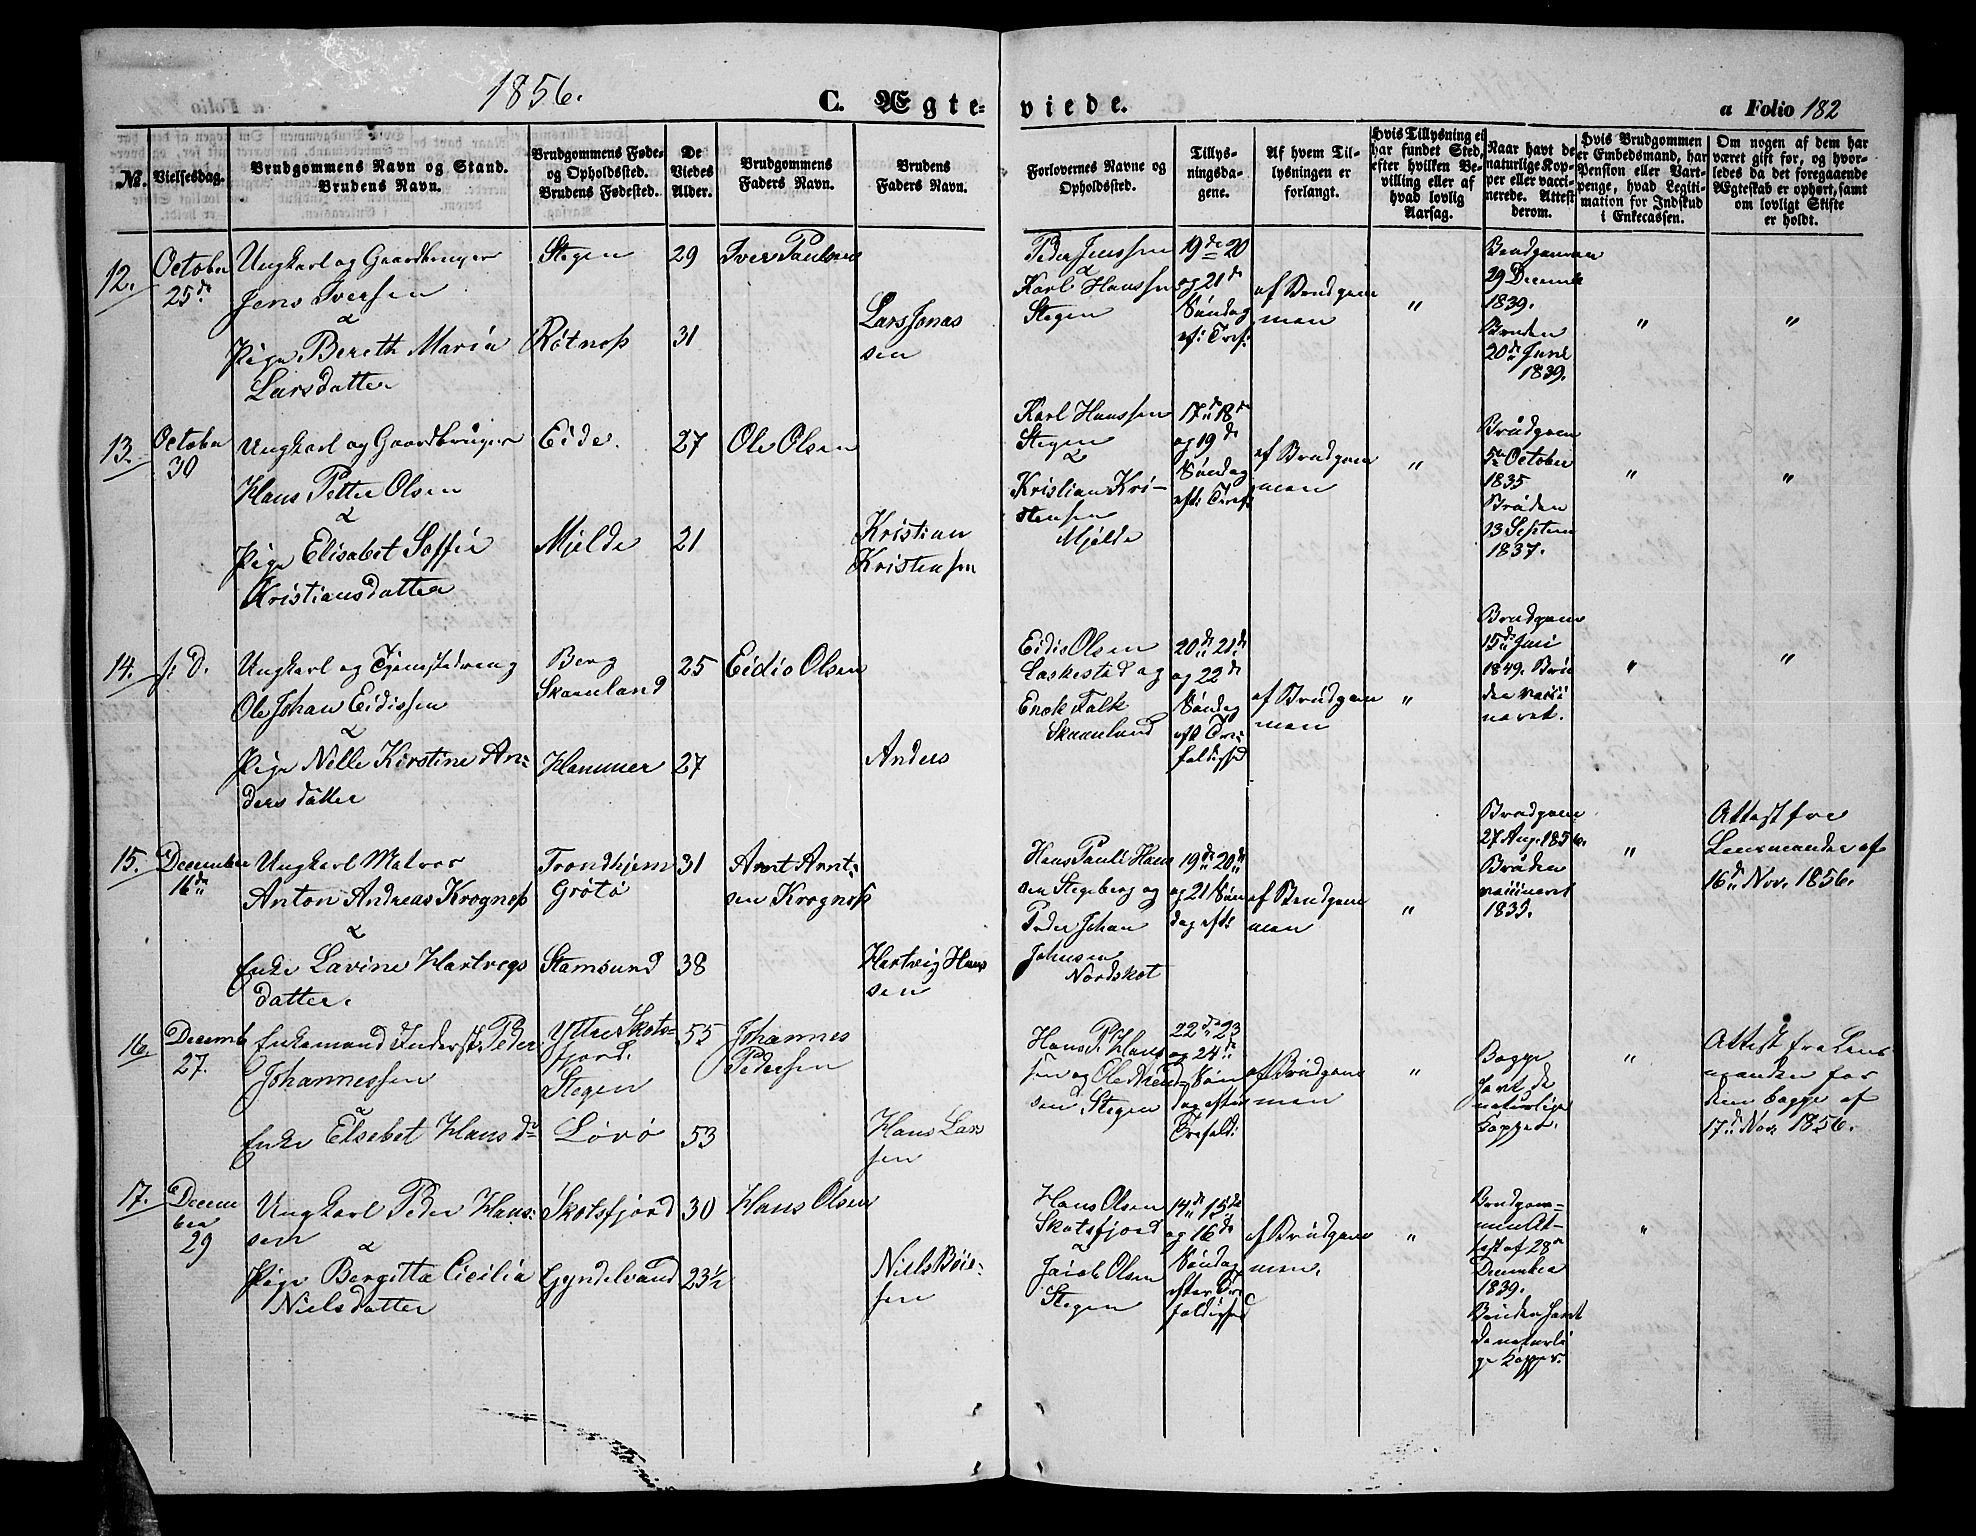 1856.
C. Ægteviede.
a Folio 182
No.
Vielsesdag.
Brudgommens Navn og Stand.
Brudens Navn.
Brudgommens Føde-
og Opholdssted.
Brudens Fødested.
De
Viedes
Alder.
Brudgommens
Faders Navn.
Brudens
Faders Navn.
Forlovernes Navne og
Opholdssted.
Tillys-
ningsda-
gene.
Af hvem Til-
lysningen er
forlangt.
Hvis Tillysning ei
har fundet Sted,
efter hvilken Be-
villing eller af
hvad lovlig
Aarsag.
Naar havt de
naturlige Kop-
per eller vacci-
nerede. Attest
derom.
Hvis Brudgommen
er Embedsmand, har
Pension eller Vart-
penge, hvad Legiti-
mation for Indskud
i Enkecassen.
Om nogen af dem har
været gift før, og hvor-
ledes da det foregaaende
Ægteskab er ophørt, samt
om lovligt Skifte
er holdt.
12.
October
25de
Ungkarl og Gaardbruger
Jens Iversen
&
Pige Bereth Maria
Larsdatter
Stegen
Røtnes
29
31
Iver Paulsen
Lars Jonas
sen
Peder Jenssen
&
Karl Hanssen
Stegen
19de 20
og 21de
Søndag
ef: Tref:
af Brudgom
men
"
Brudgommen
29 Decemb
1839.
Bruden
20de Juni
1839.
"
"
13.
October
30
Ungkarl og Gaardbruger
Hans Petter Olsen
&
Pige Elisabet Soffie
Kristiansdatter
Eide.
Mjelde
27
21
Ole Olsen
Kristian
Kristensen
Karl Hanssen
Stegen
&
Kristian Kri-
stensen
Mjelde
17de 18de
og 19de
Søndag
eft: Tref:
af Brudgom
men
"
Brudgom
5te October
1835
Bruden
13 Septem
1837.
"
"
14.
s. D.
Ungkarl og Tjenestedreng
Ole Johan Eidissen
&
Pige Nille Kirstine An-
dersdatter
Berg
Skaanland
Hammer
25
27
Eidis Olsen
Anders
Eidis Olsen
Laskestad og
Enok Falk
Skaanland
20de 21de
og 22de
Søndag
eft Tre-
foldighed
af Brudgom
men
"
Brudgom
15de Juni
1849. Bru
den vacci
neret.
"
"
15.
December
16de
Ungkarl Matros
Anton Andreas Krognes
&
Enke Lavine Hartvegs
datter.
Trondhjem
Grøtø
Stamsund
31
38
Arnt Arnt-
sen Krognes
Hartvig Hans
sen
Hans Pauli Hans
sen Stegeberg og
Peder Johan
Johnsen
Nordskot
19de 20de
og 21 Søn
dag eft:
af Brudgom
men
"
Brudgom
27 Aug. 1856.
Bruden
vaccineret
1833.
"
Attest fra
Lensmanden af
16de Nov. 1856.
16.
Decemb
27.
Enkemand Inderst Peder
Johannessen
&
Enke Elsebet Hansd.
Yttre Skots-
fjord.
Stegen
Løvø
55
53
Johannes
Pedersen
Hans Lar
sen
Hans P. Hans
sen og Ole
sen Stegen
22de 23
og 24de
Søn
dag efter
Trefold:
af Brudgom
men
"
Begge
havt de
naturlige
Kopper.
"
Attest fra Lens
manden for
dem begge af
17de Nov. 1856.
17.
Decem
ber
29
Ungkarl Peder Hans-
sen
&
Pige Bergitta Cicilia
Nielsdatter
Skotsfjord
Gyndelvand
30
23½
Hans Olsen
Niels Bøie-
sen
Hans Olsen
Skotsfjord
&
Jacob Olsen
Stegen
14de 15de
og 16de
Søndag
efter Tre
foldighed
af Brudgom
men.
"
Brudgom-
men At-
test af 28de
December
1839.
Bruden havt
de naturli
ge Kopper.
"